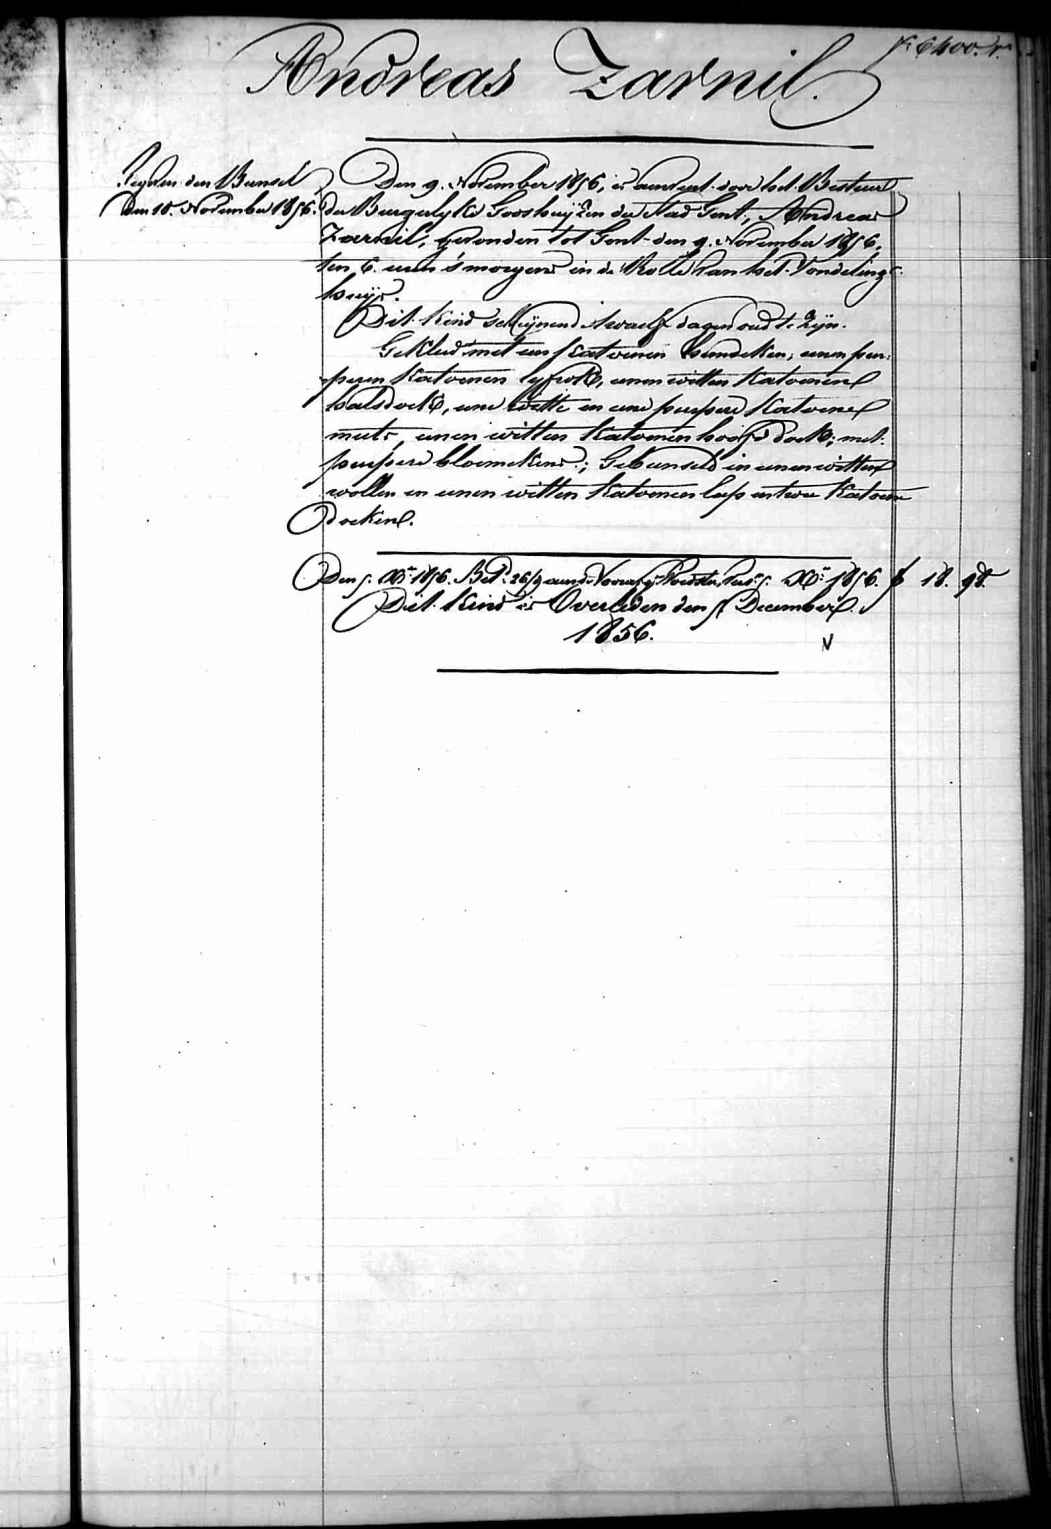 Fº 6400. rº
Andreas Zarnil.
Tegelen den Bunsel
den 10. November 1856.
Den 9. November 1856, is aenveerd door het Bestuur
der Burgerlyke Godshuyzen der Stad Gent, Andreas
Zarnil, gevonden tot Gent den 9. November 1856,
ten 6. uren 's morgens in de Rolle van het Vondeling-
huys.
Dit Kind schynend twaelf dagen oud te zyn.
Gekleed met een katoenen hemdeken, eenen pur-
peren katoenen lyfrok, eenen witten katoenen
halsdoek, eene witte en eene purpere katoene
muts, eenen witten katoenen hoofddoek, met
purpere bloemekens; Gebunseld in eenen witten
wollen en eenen witten katoenen lap en twee katoene
doeken.
Den 5. Xbr 1856. Betd. 26/9 aen de 5. Xbr 1856. f 18. 98.
Dit Kind is Overleden den 5 December
1856.